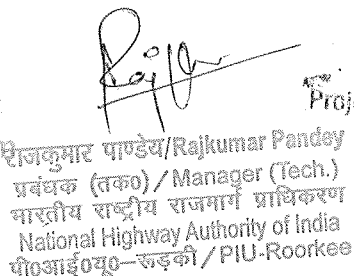 Proj
राजकुमार पाण्डेय/Rajkumar Pandey
प्रबंधक (तक०) / Manager (Tech.)
भारतीय राष्ट्रीय राजमार्ग प्राधिकरण
National Highway Authority of India
पी०आई०यू०–रूड़की / PIU-Roorkee